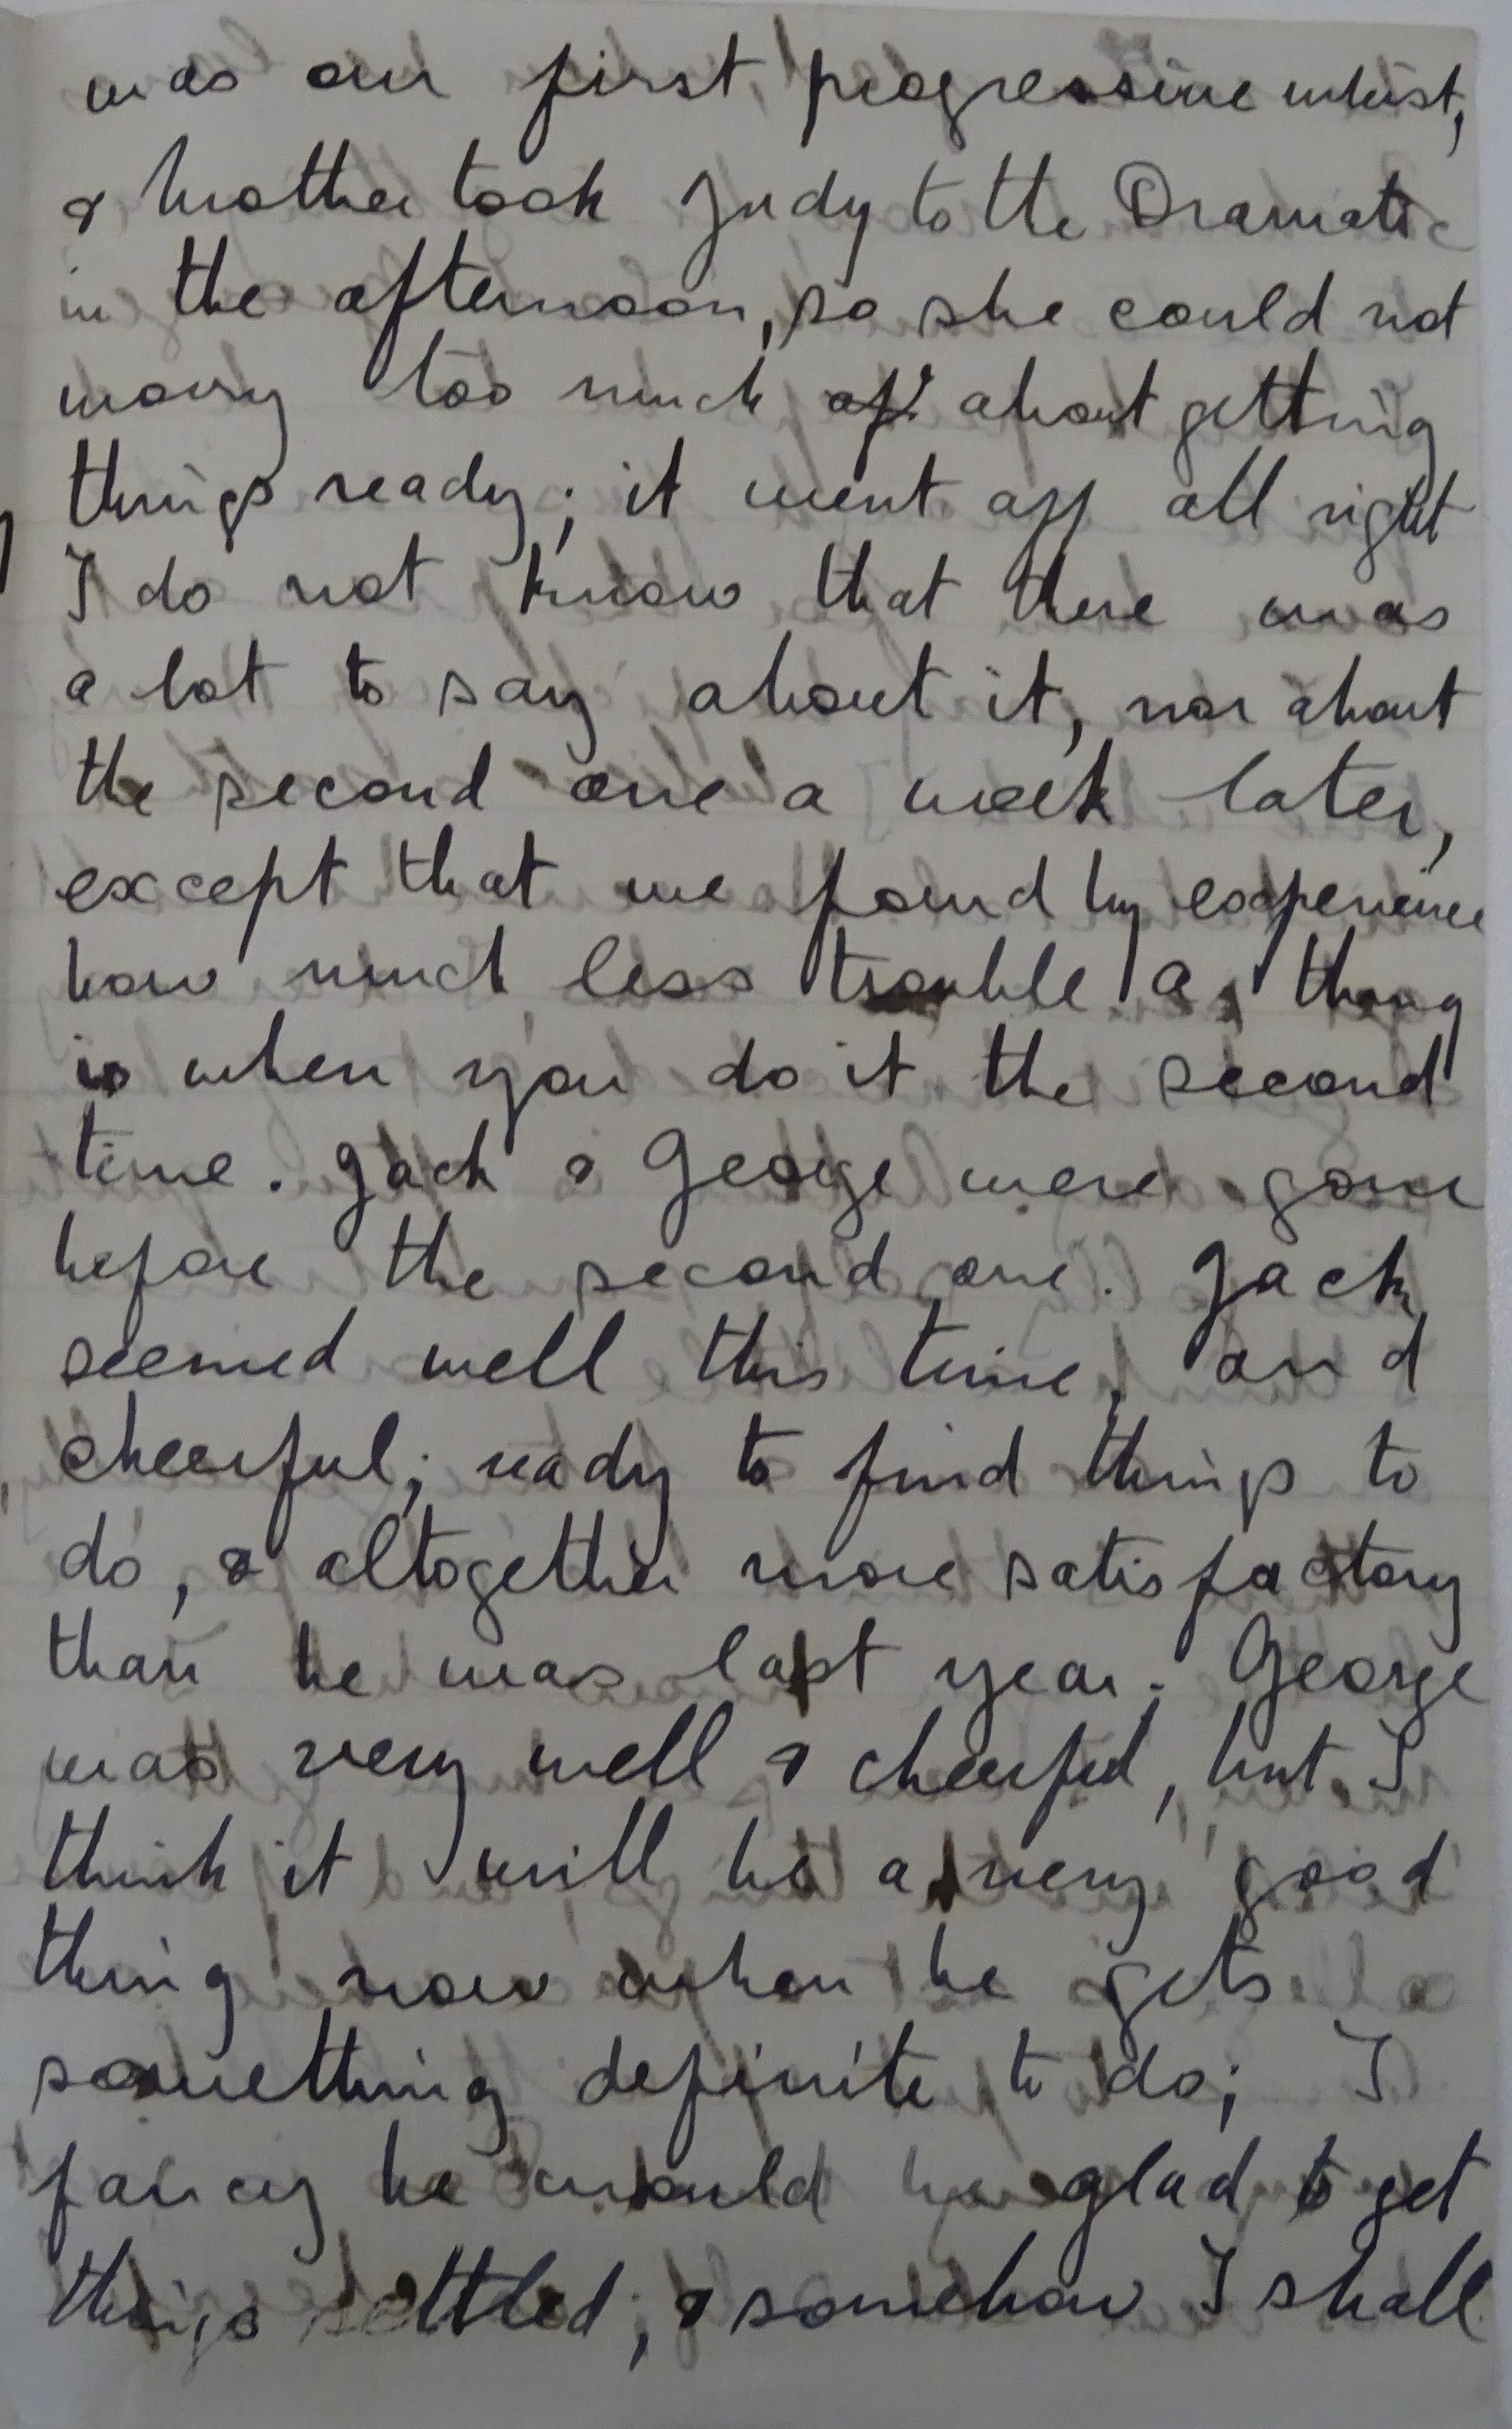 was our first progressive whist,
& Mother took Judy to the Dramatic
in the afternoon, so she could not
worry too much about getting
things ready; it went off all right
I do not know that there was
a lot to say about it, nor about
the second one a week later,
except that we found by experience
how much less trouble a thing
is when you do it the second
time. Jack & George were gone
before the second one. Jack
seemed well this time, and
cheerful; ready to find things to
do, & altogether more satisfactory
than he was last year. George
was very well & cheerful, but I
think it will be a very good
thing now when he gets
something definite to do; I
fancy he would be glad to get
things settled, & somehow I shall